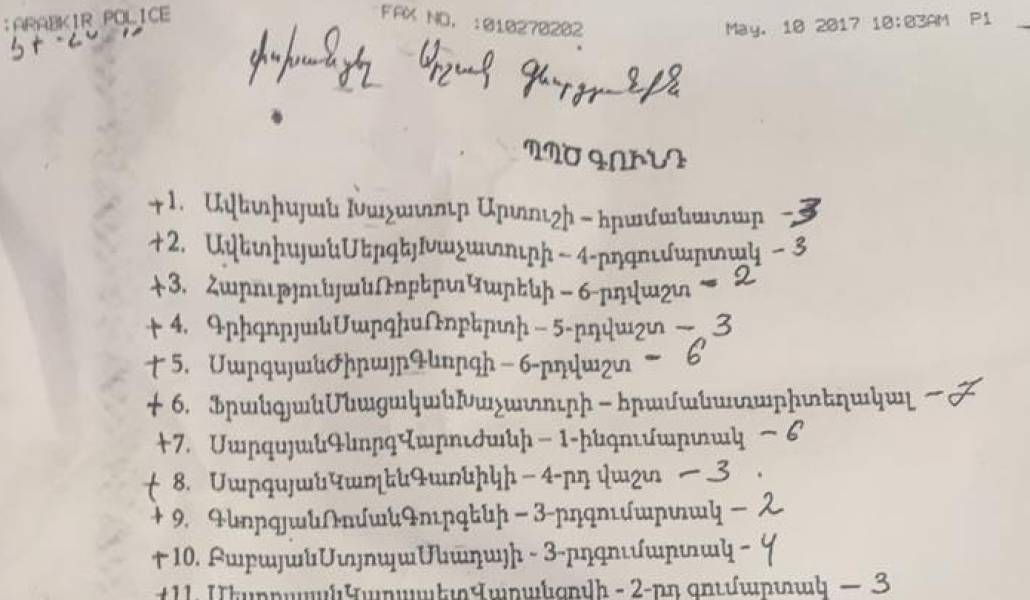 :ARABKIR POLICE FAX NO. :010270202 May. 10 2017 10:03AM P1
փոխանցել Արշակ Գևորգյանին
ՊՊԾ ԳՈՒՆԴ
+1. Ավետիսյան Խաչատուր Արտուշի – հրամանատար – 3
+2. ԱվետիսյանՍերգեյԽաչատուրի – 4-րդգումարտակ – 3
+3. ՀարությունյանՌոբերտԿարենի – 6-րդվաշտ – 2
+ 4. ԳրիգորյանՍարգիսՌոբերտի – 5-րդվաշտ – 3
+ 5. ՍարգսյանԺիրայրԳևորգի – 6-րդվաշտ – 6
+ 6. ՖրանգյանՄնացականԽաչատուրի – հրամանատարիտեղակալ – 7
+7. ՍարգսյանԳևորգՎարուժանի – 1-ինգումարտակ – 6
+ 8. ՍարգսյանԿառլենԳառնիկի – 4-րդ վաշտ – 3
+ 9. ԳևորգյանՌոմանԳուրգենի – 3-րդգումարտակ – 2
+10. ԲաբայանՍտյոպաՄնադայի - 3-րդգումարտակ - 4
+11. - 2-րդ գումարտակ – 3